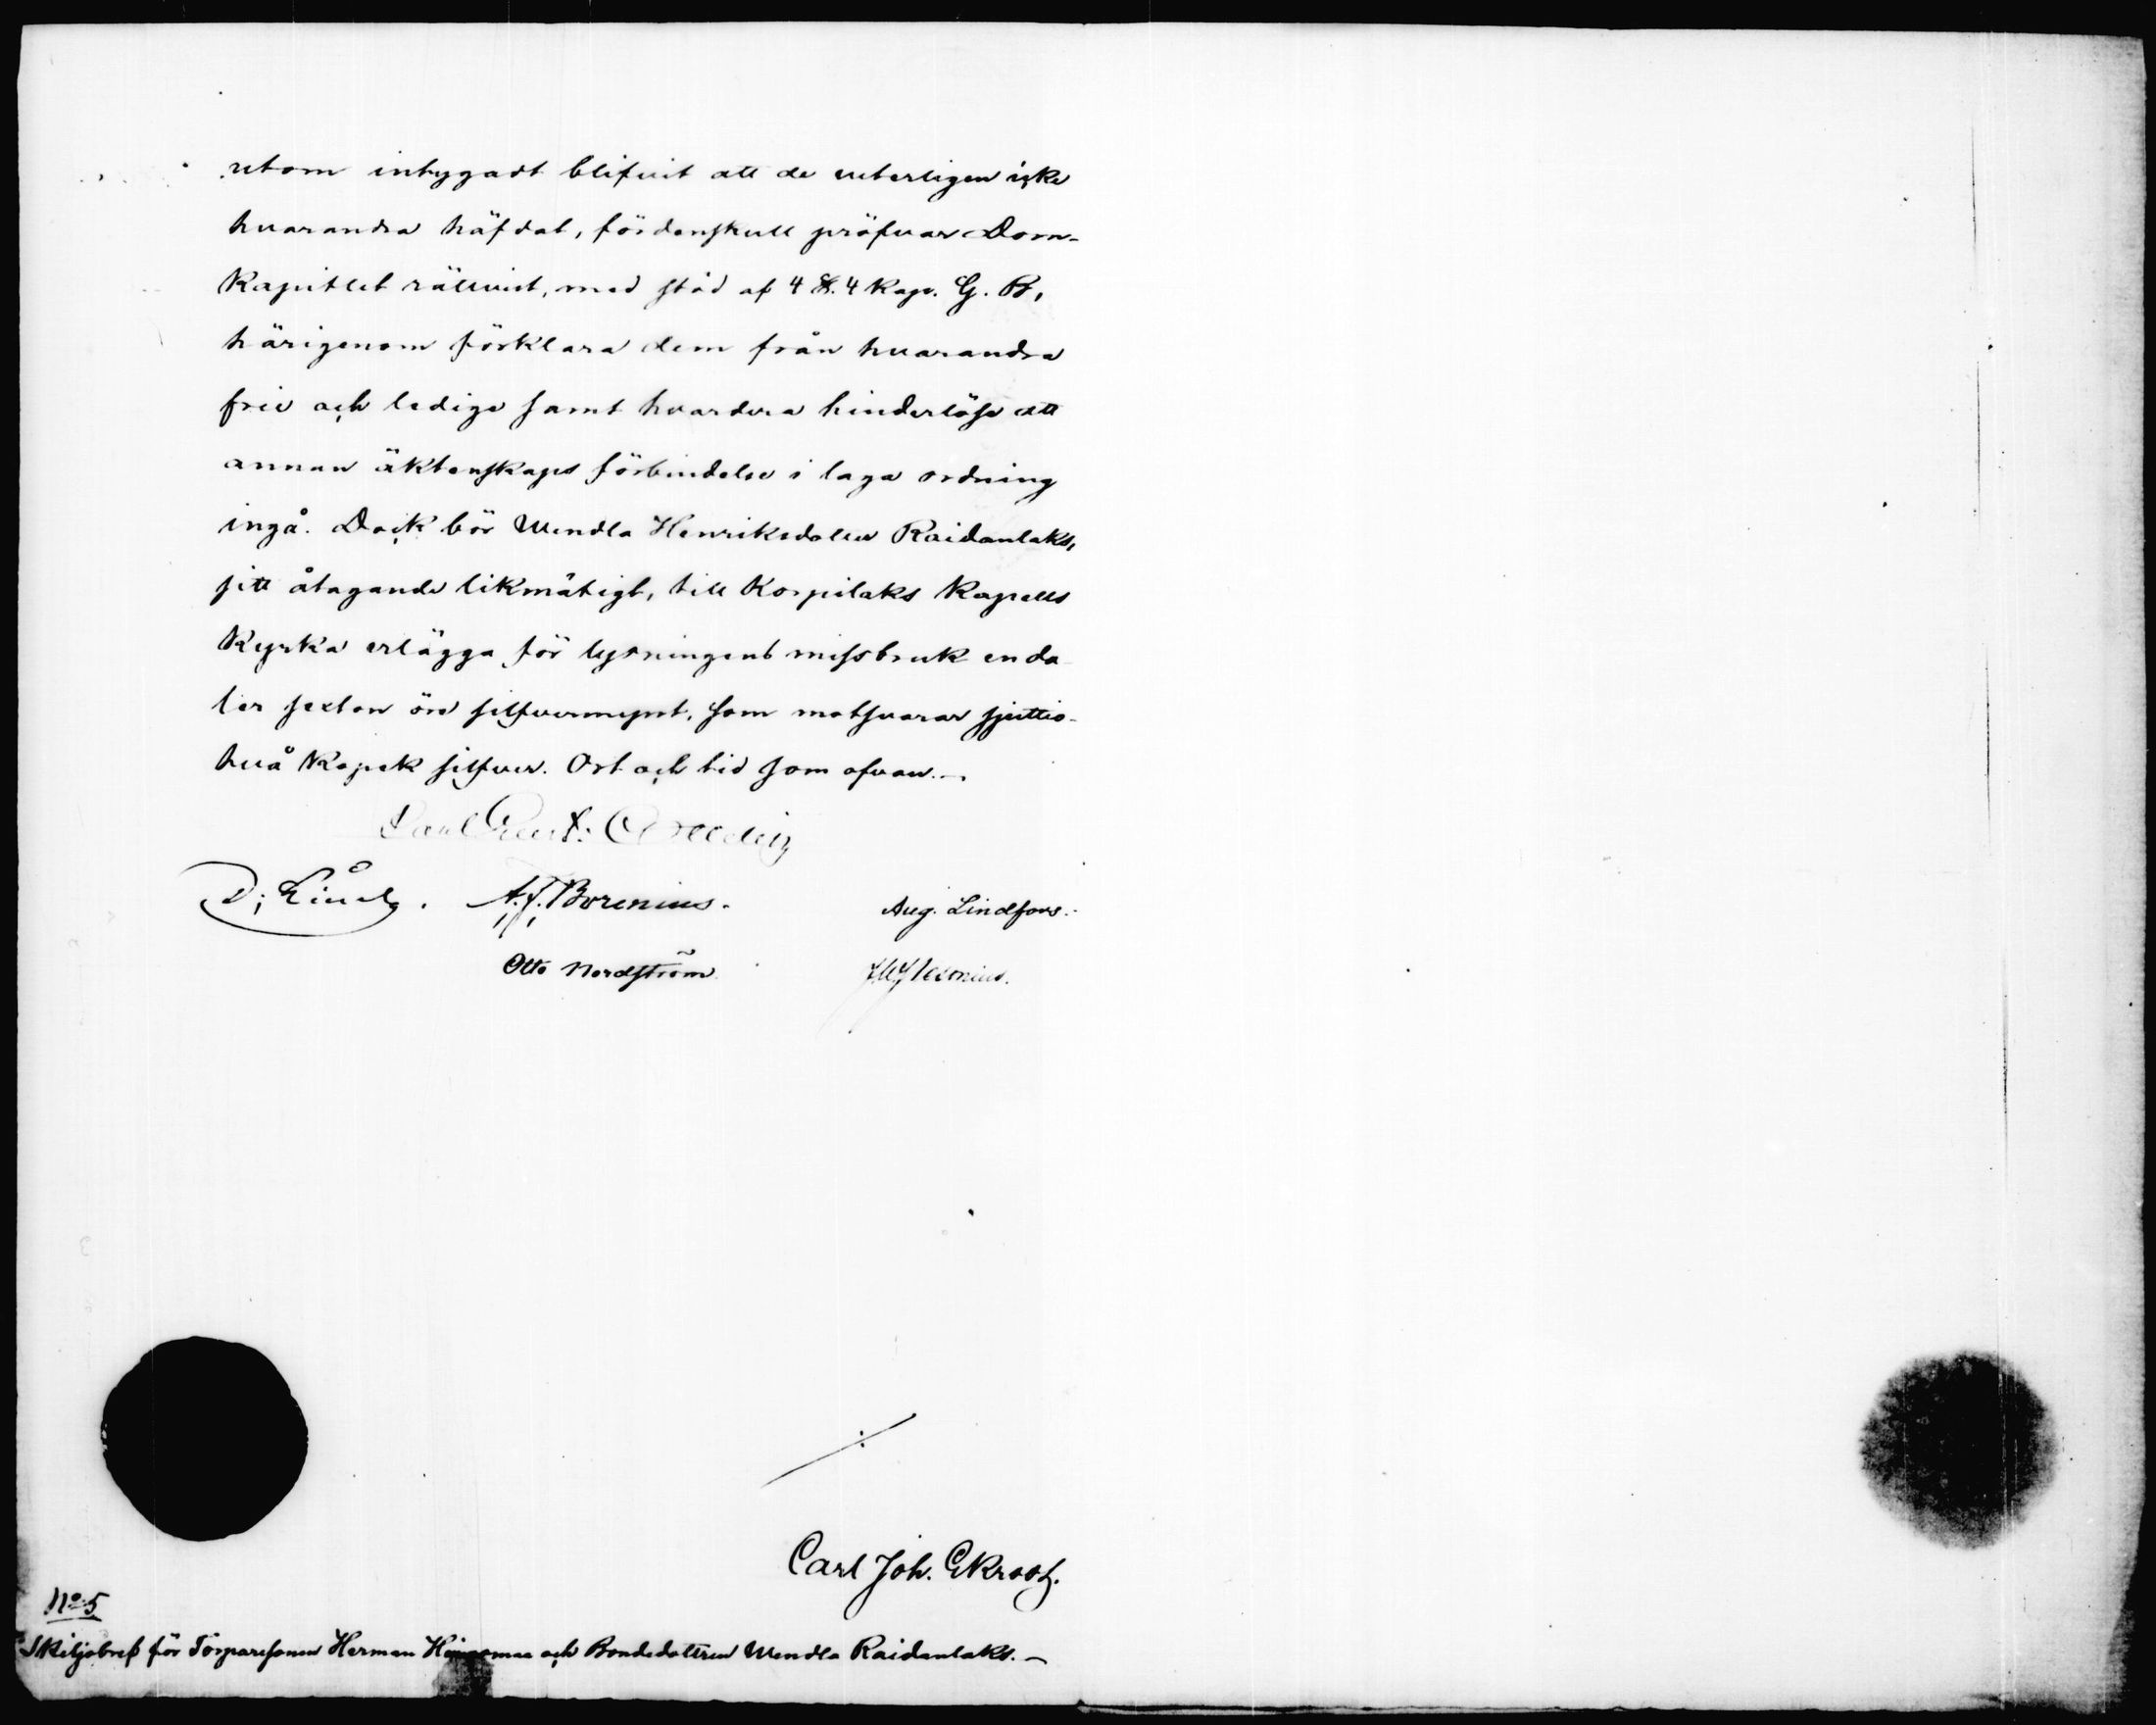 utom intygadt blifvit att de veterligen icke
hvarandra häfdat, fördenskull pröfvar Dom-
kapitlet rättvist, med stöd af 4 §. 4 Kap. G. B,
härigenom förklara dem från hvarandra
frie och ledige samt hvardera hinderlöse att
annan äktenskaps förbindelse i laga ordning
ingå. Dock bör Wendla Henriksdotter Raidanlaks,
sitt åtagande likmätigt, till Korpilaks Kapells
Kyrka erlägga för lysningens missbruk en da
ler sexton öre silfvermynt, som motsvarar sjuttio-
två kopek silfver. Ort och tid som ofvan.—
Carl Gust: Ottelin
A. J. Borenius. Aug. Lindfors.
Otto Nordström
Carl Joh. Ekroos.
No 5
Skiljobref för Torparesonen Herman och Bondedottren Wendla Raidanlaks.—